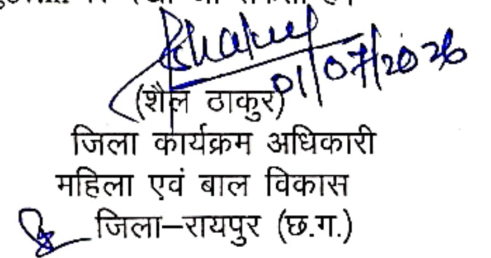 01/07/2026
(शैल ठाकुर)
जिला कार्यक्रम अधिकारी
महिला एवं बाल विकास
जिला–रायपुर (छ.ग.)